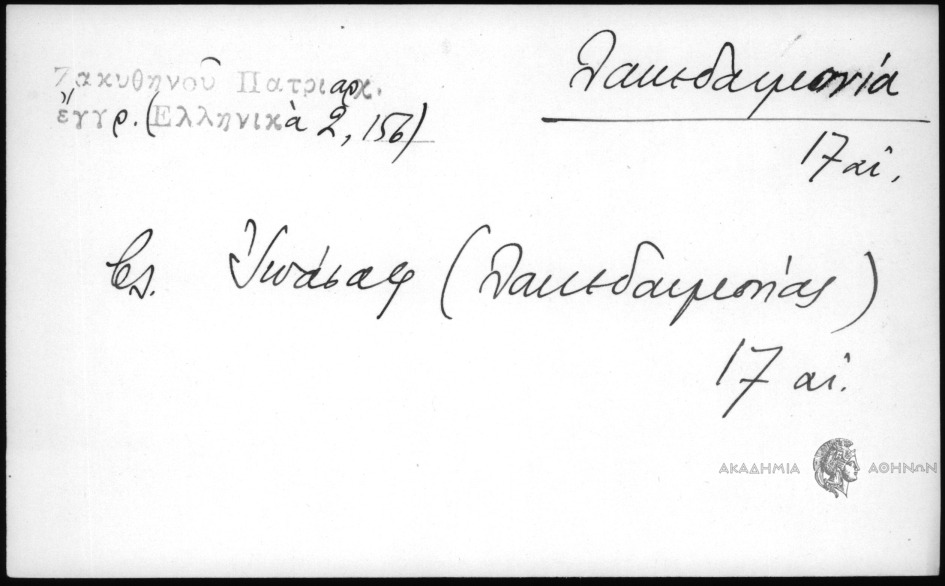 Ζακυθηνοῦ Πατριαρχ.
ἔγγρ. (Ἑλληνικὰ 2, 156)
Λακεδαιμονία
17 αἰ.
βλ. Ἰωάσαφ (Λακεδαιμονίας)
17 αἰ.
ΑΚΑΔΗΜΙΑ ΑΘΗΝΩΝ